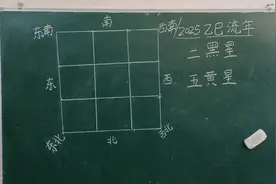 东南 南 西南/2025乙巳流年
二黑星
东 西 五黄星
东北 北 西北